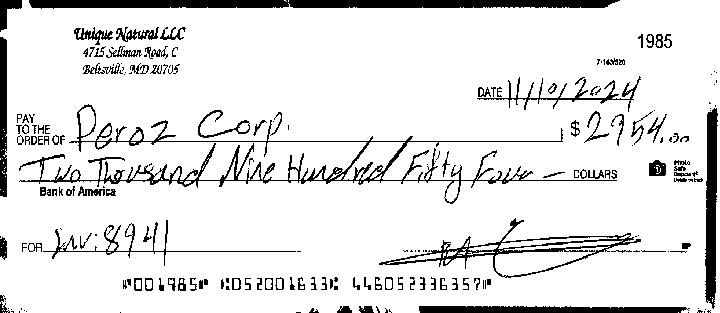 Unique Natural LLC
4715 Sellman Road, C
Beltsville, MD 20705
1985
7-163/520
DATE 11/10/2024
PAY TO THE ORDER OF Peroz Corp. $ 2954.00
Two Thousand Nine Hundred Fifty Four — DOLLARS
Photo Safe Deposit®
Bank of America
FOR Inv: 8941
MP
⑈001985⑈ ⑆052001633⑆ 446052336357⑈